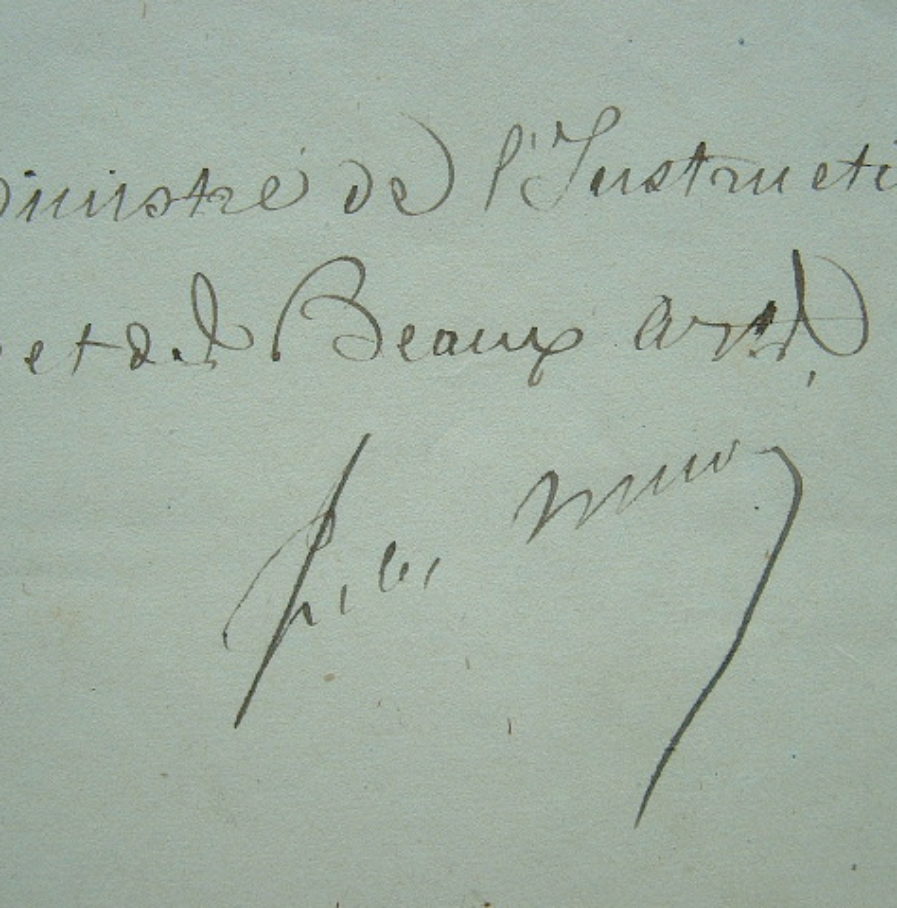 Ministre de l'Instructi
et des Beaux Arts,
Jules Simon